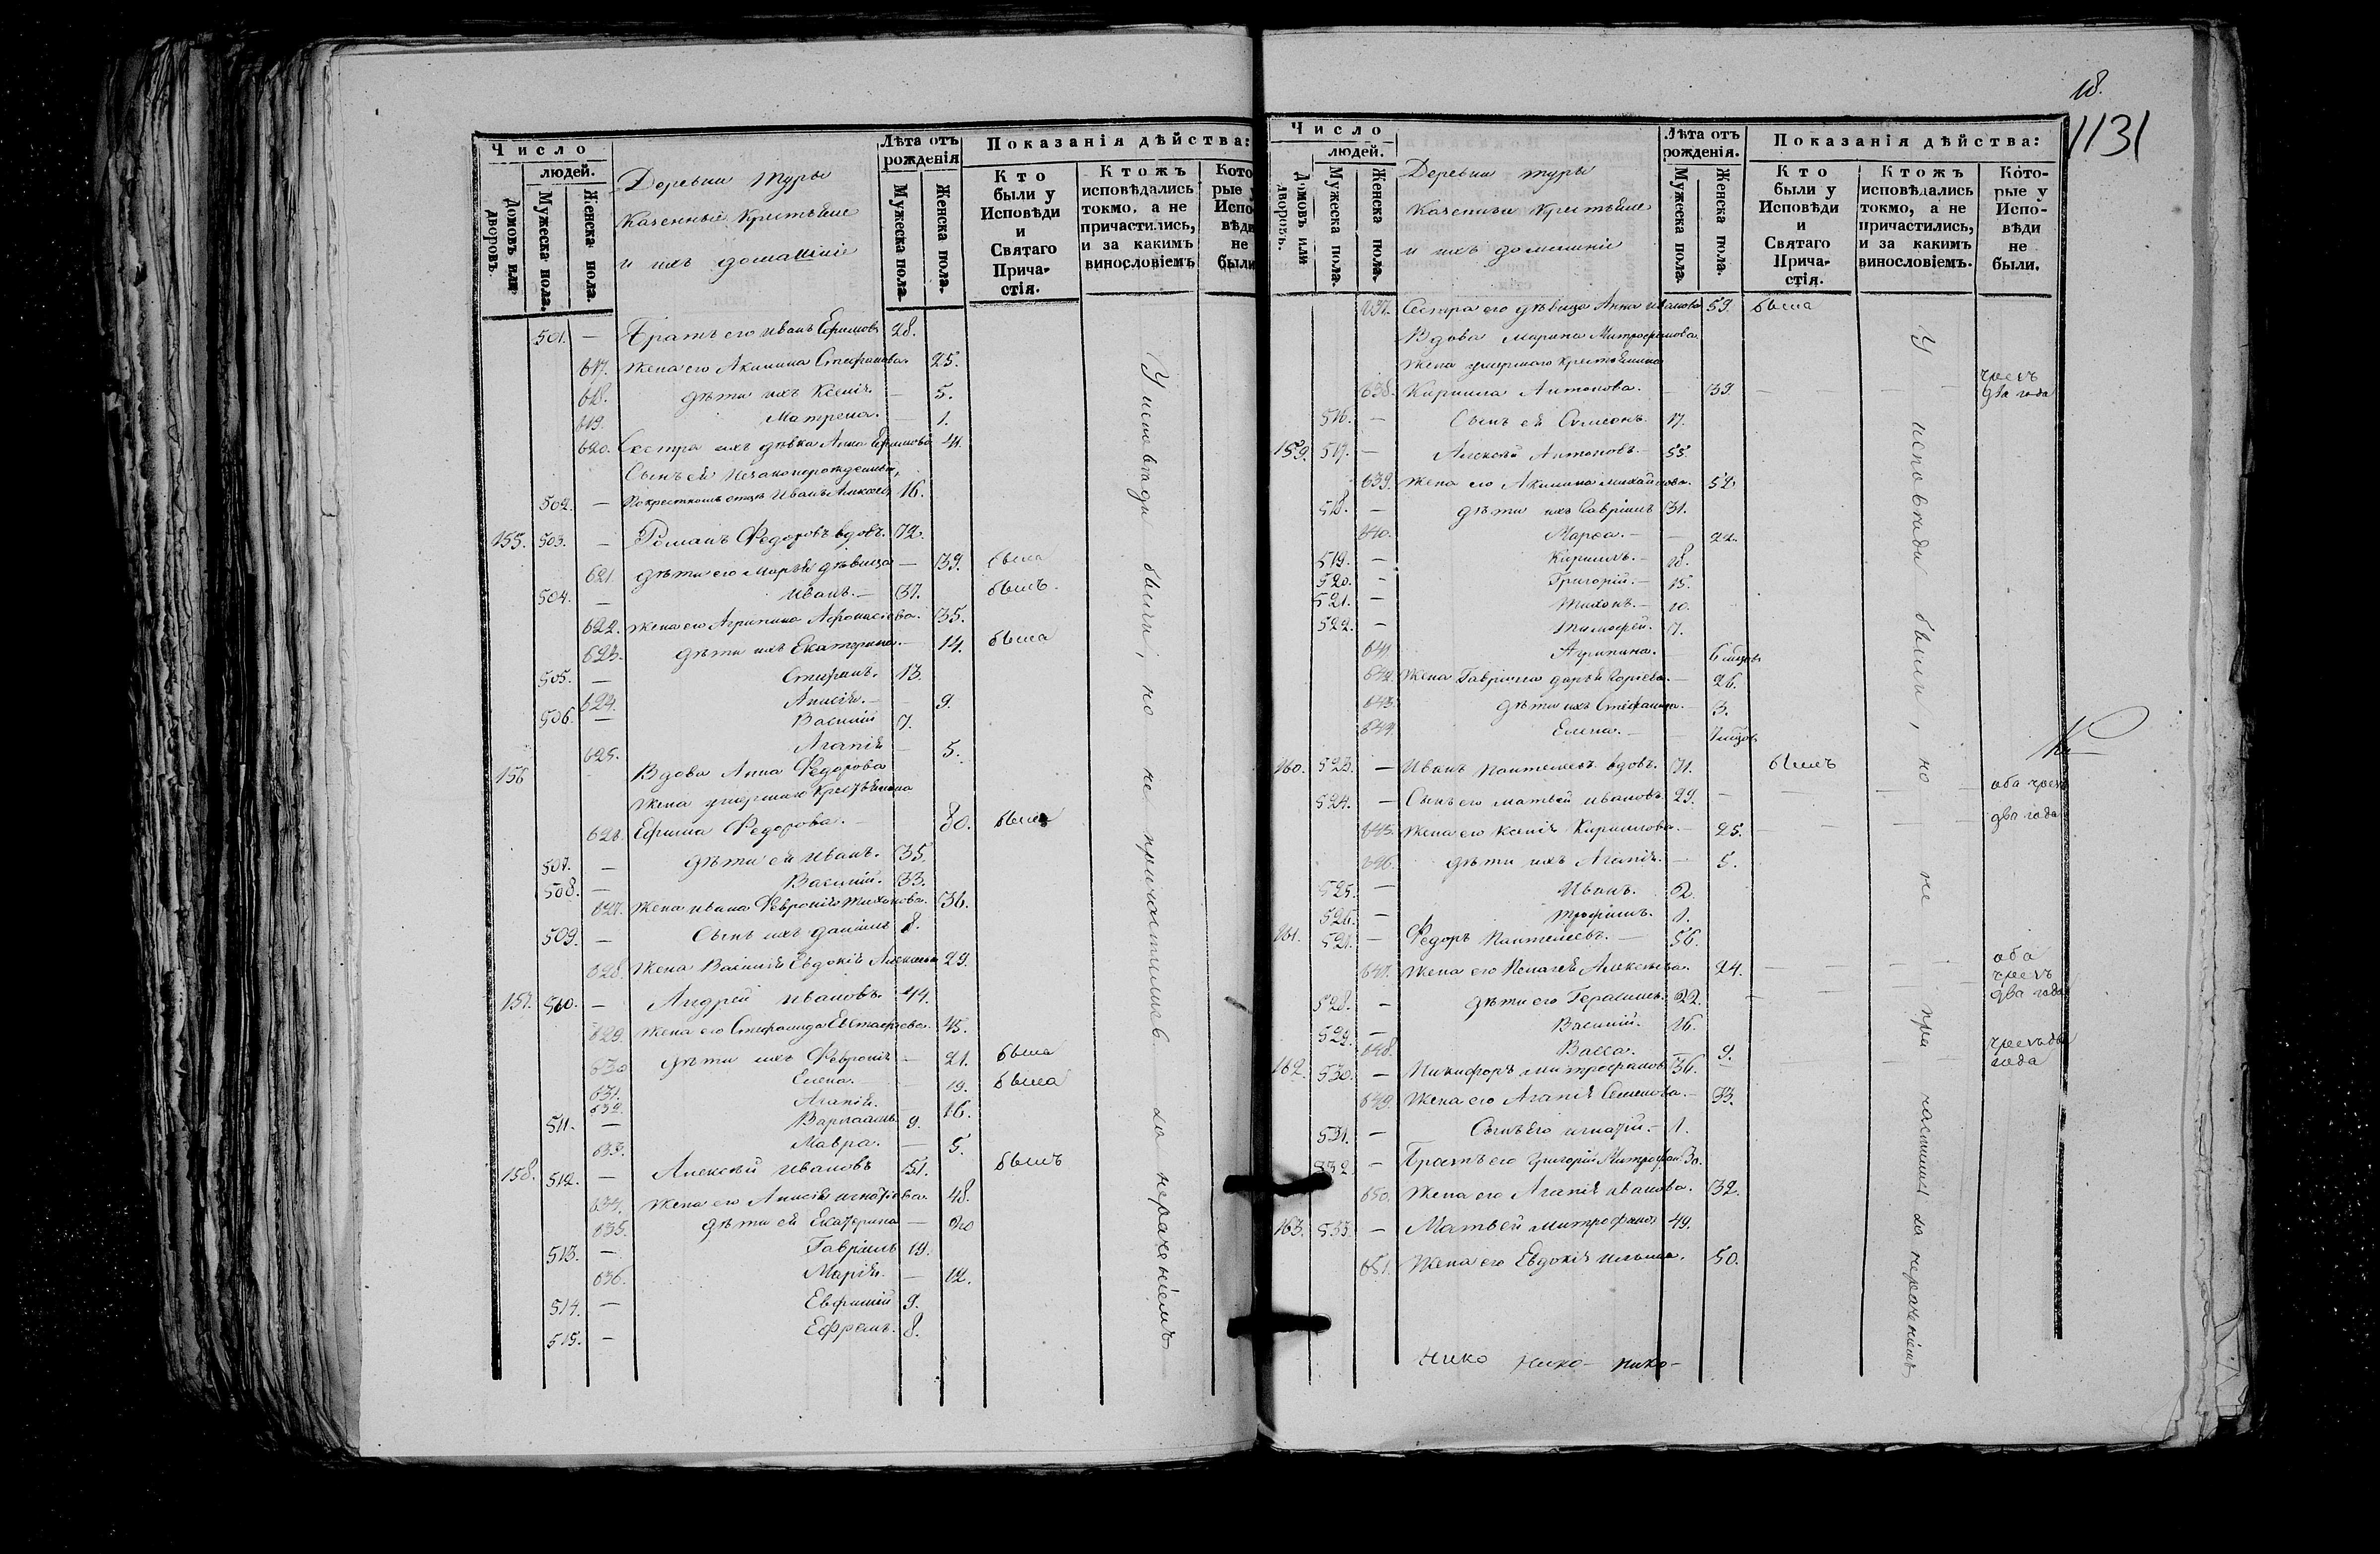 Число
людей.
Домовъ или дворовъ.
Мужеска пола.
Женска пола.
Деревни Туры
Казенные Крестьяне
и ихъ домашніе
Лѣта отъ рожденія
Мужеска пола.
Женска пола.
Показанія дѣйства:
Кто были у Исповѣди и Святаго Причастія.
Ктожъ исповѣдались токмо, а не причастились, и за какимъ винословіемъ
Которые у Исповѣди не были
501. — Братъ его Иванъ Ефимовъ 28.
617. Жена его Акилина Стефанова. 25.
618. дѣти ихъ Ксенія. — 5.
619. Матрена. — 1.
620. Сестра ихъ дѣвка Анна Ефимова 41.
Сынъ ей незаконорожденный,
502. — По крестномъ отцѣ Иванъ Алексѣев 16.
155. 503. — Романъ Федоровъ вдовъ. 72.
621. дѣти его Марья дѣвица — 39. была
504. — Иванъ. — 37. былъ.
622. Жена его Агрипина Афонасіева. 35.
623. дѣти ихъ Екатерина. — 14. была
505. — Стефанъ. 13.
624. Анисія. — 9.
506. — Василій 7.
625. Агапія — 5.
156 Вдова Анна Федорова
Жена умершаго Крестьянина
626. Ефима Федорова. — 80. была
507. — дѣти ей Иванъ. 35.
508. — Василій. 33.
627. Жена Ивана Февронія Тихонова. 36.
509. — Сынъ ихъ Даніилъ 8.
628. Жена Василія Евдокія Алексѣева 29.
157. 510. — Андрей Ивановъ. 44.
629. Жена его Стефанида Евстафіева. 45.
630 дѣти ихъ Февронія — 21. была
631. Елена. — 19. была
632. Агапія. 16.
511. — Варлаамъ. 9.
633. Мавра. — 5.
158. 512. — Алексѣй Ивановъ 51. былъ
634. Жена его Анисія Игнатіева. 48.
635. дѣти ей Екатерина — 20
513. — Гавріилъ 19.
636. Марія. — 12.
514. — Евфимій 9.
515. — Ефремъ. 8.
У исповѣди были, но не причастились за нерачѣніемъ
18.
1131
Число
людей.
Домовъ или дворовъ.
Мужеска пола.
Женска пола.
Деревни Туры
Казенные Крестьяне
и ихъ домашніе
Лѣта отъ рожденія.
Мужеска пола.
Женска пола.
Показанія дѣйства:
Кто были у Исповѣди и Святаго Причастія.
Ктожъ исповѣдались токмо, а не причастились, и за какимъ винословіемъ.
Которые у Исповѣди не были.
637. Сестра его дѣвица Анна Иванова 59. была
Вдова Марина Митрофанова
Жена умершаго Крестьянина
638. Кирилла Антонова. — 39. — два года
516. — Сынъ ей Симеонъ. 17.
159. 517. — Алексѣй Антоновъ. — 55.
639. Жена его Акилина Михайлова. 52
518. — дѣти ихъ Гавріилъ 31.
640. Марѳа. — — 22.
519. — Кириллъ. — 18.
520. — Григорій. — 15.
521. — Тихонъ. — 10.
522. — Тимофей. — 7.
641 Агрипина. —
642. Жена Гавріила Дарья — 26.
643. дѣти ихъ Стефанида. — 3.
644 Елена. —
160. 523. — Иванъ Пантелеевъ вдовъ. 71. былъ
524. — Сынъ его Матвей Ивановъ 29. — оба чрезъ
645. Жена его Ксенія Кириллова. — 25. — два года
646. дѣти ихъ Агапія. — 5.
525. — Иванъ. 2.
526. — Трофимъ. 1.
161. 527. — Федоръ Пантелеевъ. — 56.
647. Жена его Пелагея Алексѣева. 24. — оба чрезъ
528. — дѣти его Герасимъ. 22. — два года
529. — Василій. 16.
648. Васса. — 9.
162. 530. — Никифоръ Митрофановъ 36. года
649. Жена его Агапія Семенова. — 33.
531. — Сынъ его Игнатій. — 1.
532 — Братъ его Григорій Митрофан 30.
650. Жена его Агапія Иванова. 32.
163. 533. — Матвей Митрофанов 49.
651. Жена его Евдокія Ильина. 50.
У исповѣди были, но не причастились за нерачѣніемъ
Нико Нико- Нико-